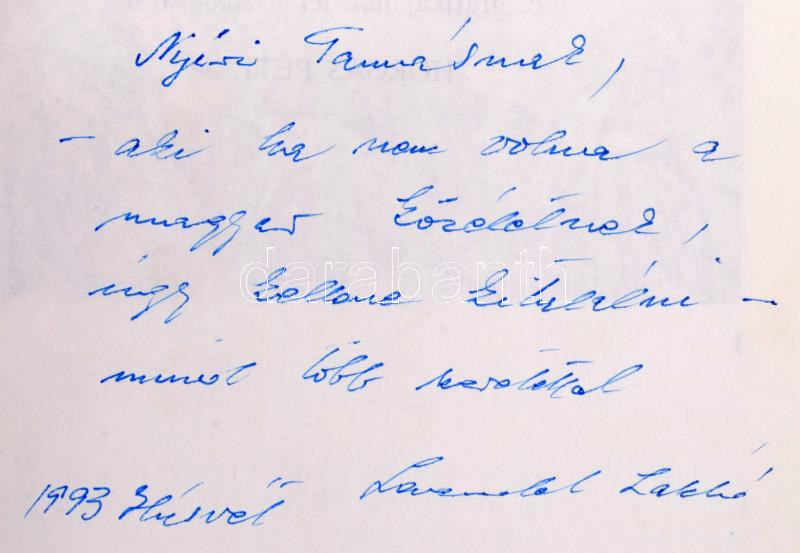 Nyéri Tamásnak,
- aki ha nem volna a
magyar közéletnek,
úgy kellene kitalálni -
minél több szeretettel
1993 Húsvét
László
darabanth